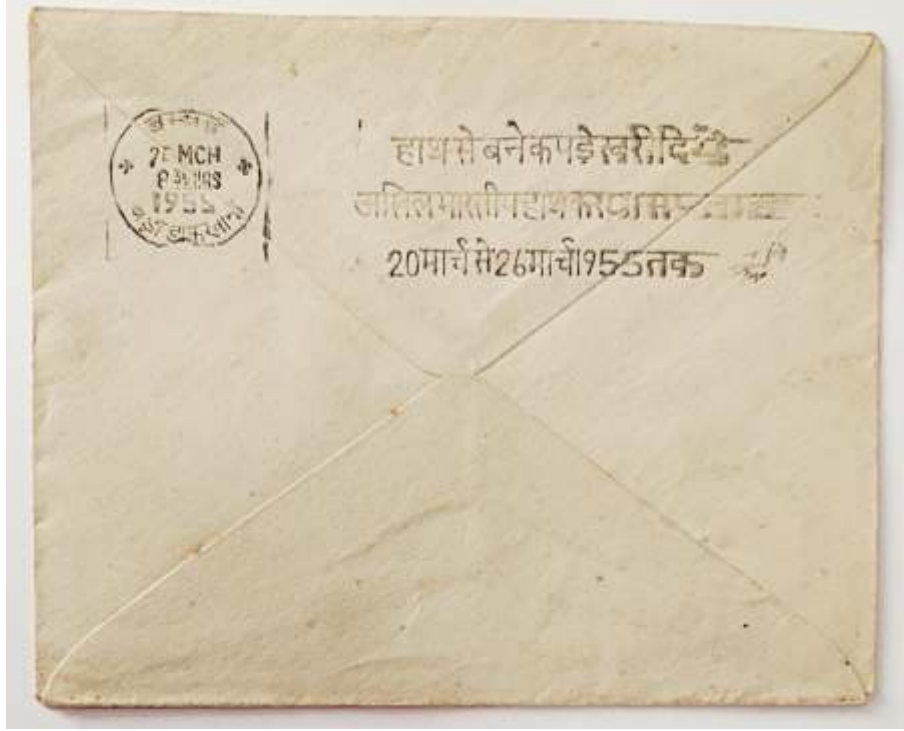 बम्बई
MCH
1955
बड़ा डाकखाना
हाथ से बने कपड़े खरीदिये
अखिल भारतीय हाथ करघा सप्ताह
20 मार्च से 26 मार्च 1955 तक